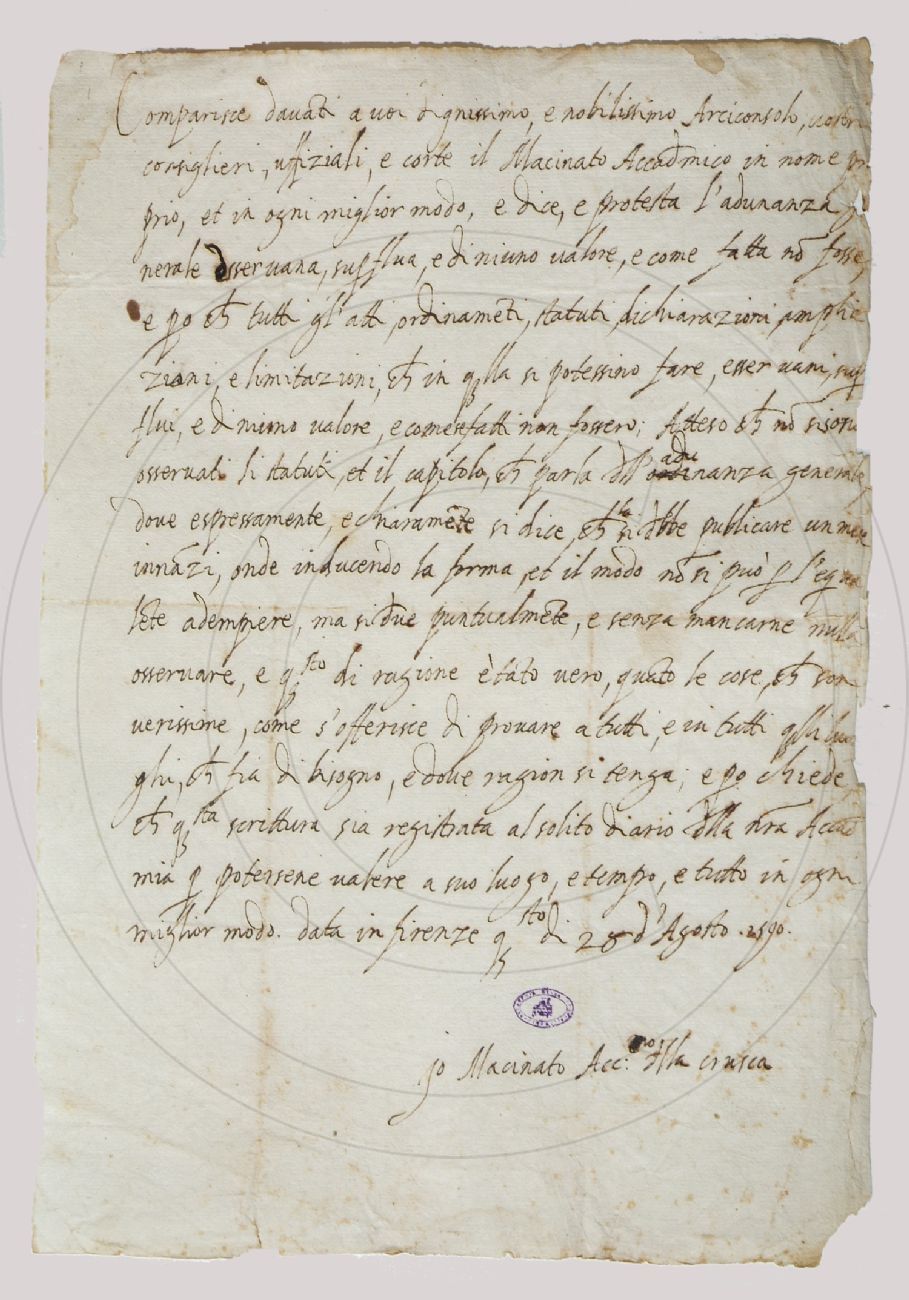 Comparisce davãti a voi dignissimo, e nobilissimo Arciconsolo, vostri
consiglieri, uffiziali, e corte il Macinato Accad̃mico in nome pro
prio, et in ogni miglior modo, e dice, e protesta l'adunanza
nerale esser vana, supflua, e di niuno valore, e come fatta nõ fosse,
e po ch̃ tutti gl'atti, ordinamẽti, statuti, dichiarazioni, amplia
zioni, e limitazioni, ch̃ in q̃lla si potessino fare, esser vani, sup
flui, e di niuno valore, e come fatti non fossero; Atteso ch̃ nõ si sono
osservati li statuti, et il capitolo, ch̃ parla dell' adunanza generale,
dove espressamente, e chiaramẽte si dice, ch̃ la si d̃bbe publicare un mese
innãzi, onde inducendo la forma, et il modo nõ si può p l'equiva
lẽte adempiere, ma si d̃ve puntualmẽte, e senza mancarne nulla
osservare, e q.sto di ragione è tãto vero, quãto le cose, ch̃ son
verissime, come s'offerisce di provare a tutti, e in tutti q̃lli luo
ghi, ch̃ fia di bisogno, e dove ragion si tenga; e po chiede,
ch̃ q.sta scrittura sia registrata al solito diario d̃lla nr̃a Accad̃
mia p potersene valere a suo luogo, e tempo, e tutto in ogni
miglior modo. data in firenze q.sto di 28 d'Agosto 1590.
Jo Macinato Acc:co d̃lla crusca